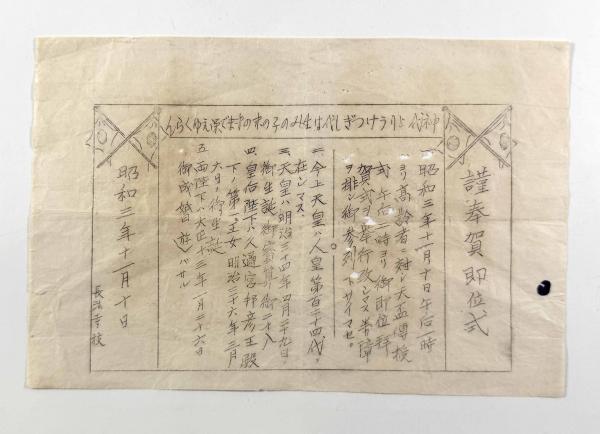 謹奉賀即位式
神代よりうけつぎし代は生みの子の末の末まで栄えゆくらん
一、昭和三年十一月十日午后一時
ヨリ高齢者ニ対シ天盃傳授
式午后二時ヨリ御即位拝
賀式ヲ挙行致シマス萬障
ヲ排シ御参列下サイマセ。
二、今上天皇ハ人皇第百二十四代ニ
在シマス。
三、天皇ハ明治三十四年四月二十九日
御生誕御寳算御二十八
四、皇后陛下ハ久邇宮邦彦王殿
下ノ第一王女明治三十六年三月
六日ノ御生誕
五、両陛下ハ大正十三年一月二十六日
御成婚遊バサル
昭和三年十一月十日
長 校